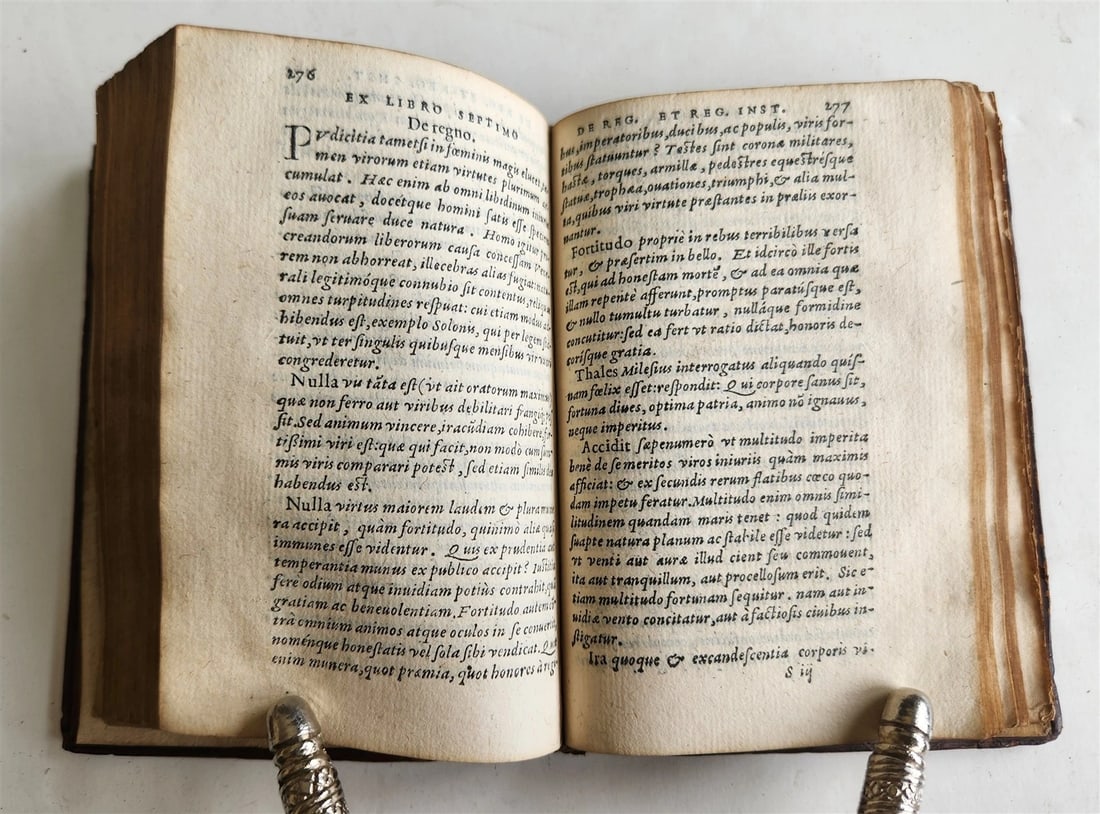 276
EX LIBRO SEPTIMO
De regno.
Pvdicitia tametsi in fœminis magis elucet,
men virorum etiam virtutes plurimum
cumulat. Hæc enim ab omni libidinum
eos auocat, docétque homini satis esse
suam seruare duce natura. Homo igitur
creandorum liberorum causa concessam
rem non abhorreat, illecebras alias fugiat:
rali legitimóque connubio sit contentus,
omnes turpitudines respuat: cui etiam modus
hibendus est, exemplo Solonis, qui per legem
tuit, vt ter singulis quibusque mensibus vir
congrederetur.
Nulla vis tāta est (vt ait oratorum maximus
quæ non ferro aut viribus debilitari frangíque
sit. Sed animum vincere, iracūdiam cohibere,
tissimi viri est: quæ qui facit, non modò cum
mis viris comparari potest, sed etiam similis
habendus est.
Nulla virtus maiorem laudem & plura
ra accipit, quàm fortitudo, quinimò aliæ
immunes esse videntur. Quis ex prudentia
temperantia munus ex publico accipit? Iustitia
fere odium atque inuidiam potiùs contrahit,
gratiam ac beneuolentiam. Fortitudo autem
trà omnium animos atque oculos in se
noménque honestatis vel sola sibi vendicat.
enim munera, quot præmia, quot honores à
DE REG. ET REG. INST. 277
bus, imperatoribus, ducibus, ac populis, viris for-
tibus statuuntur? Testes sint coronæ militares,
hastæ, torques, armillæ, pedestres equestrésque
statuæ, trophæa, ouationes, triumphi, & alia mul-
ta, quibus viri virtute præstantes in præliis exor-
nantur.
Fortitudo propriè in rebus terribilibus versa
tur, & præsertim in bello. Et idcircò ille fortis
est, qui ad honestam mortē, & ad ea omnia quæ
illam repentè afferunt, promptus paratúsque est,
& nullo tumultu turbatur, nulláque formidine
concutitur: sed ea fert vt ratio dictat, honoris de-
corisque gratia.
Thales Milesius interrogatus aliquando quis-
nam fœlix esset: respondit: Qui corpore sanus sit,
fortuna diues, optima patria, animo nō ignauus,
neque imperitus.
Accidit sæpenumerò vt multitudo imperita
benè de se meritos viros iniuriis quàm maximis
afficiat: & ex secundis rerum flatibus cœco quo-
dam impetu feratur. Multitudo enim omnis simi-
litudinem quandam maris tenet: quod quidem
suapte natura planum ac stabile esse videtur: sed
vt venti aut auræ illud cient seu commouent,
ita aut tranquillum, aut procellosum erit. Sic e-
tiam multitudo fortunam sequitur. nam aut in-
uidiæ vento concitatur, aut à factiosis ciuibus in-
stigatur.
Ira quoque & excandescentia corporis vi-
S iij